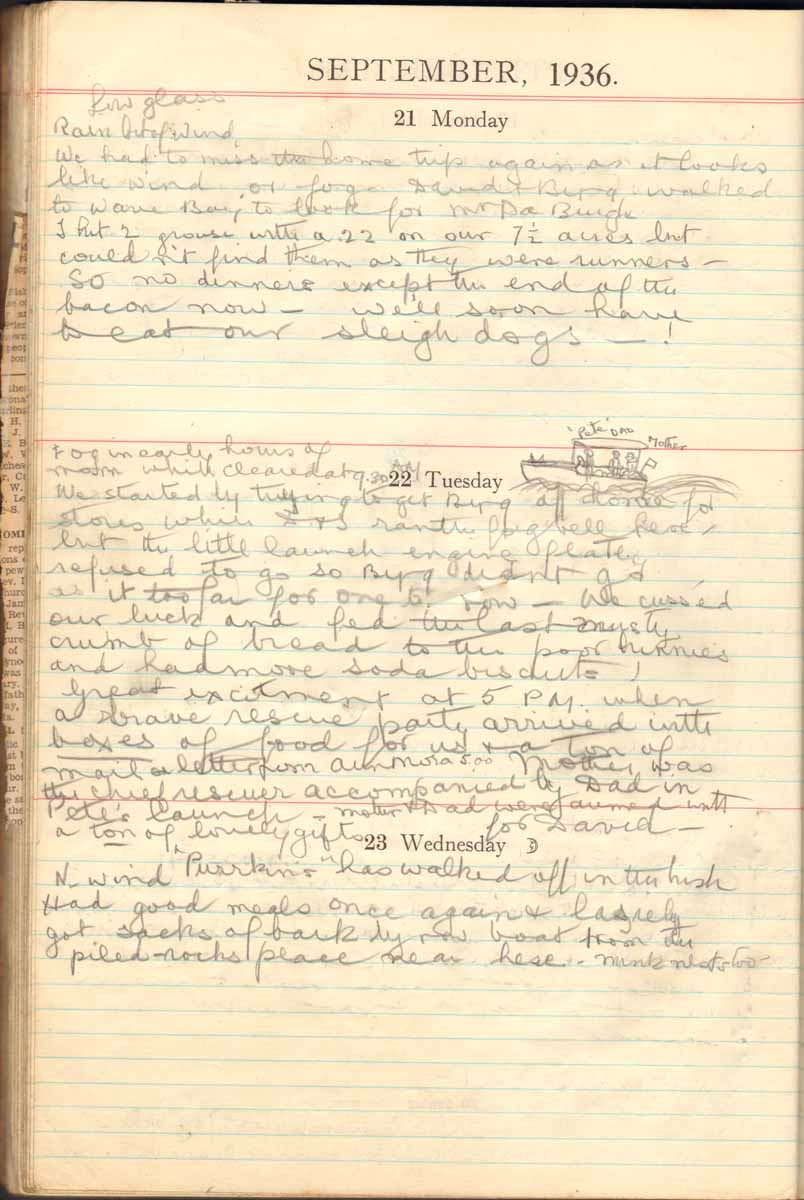 SEPTEMBER, 1936.
Low glass
21 Monday
Rain bit of wind
We had to miss the home trip again as it looks
like wind or fog. David & Byrg walked
to Wave Bay, to look for Mr Da Burgh
I hit 2 grouse with a .22 on our 7½ acres but
couldn't find them as they were runners —
So no dinners except the end of the
bacon now — we'll soon have
to eat our sleigh dogs — !
"Pete" DAD
Mother
Fog in early hours of
morn which cleared at 9.30 AM
22 Tuesday
We started by trying to get Byrg off home for
stores while D & I ran the fog bell here,
but the little launch engine
refused to go so Byrg didn't go
as it too far for one to row — We cussed
our luck and fed the last musty
crumb of bread to the poor
and had more soda biscuits !
Great excitment at 5 P.M. when
a brave rescue party arrived with
boxes of food for us & a ton of
mail & letter from Aun Mora 5.00 Mother was
the chief rescuer accompanied by Dad in
Pete's launch — mother & Dad were armed with
a ton of lovely gifts for David —
23 Wednesday
N. wind "Purrkins" has walked off in the bush
Had good meals once again & lazely
got sacks of bark by row boat from the
piled-rocks place near here - mink nests too